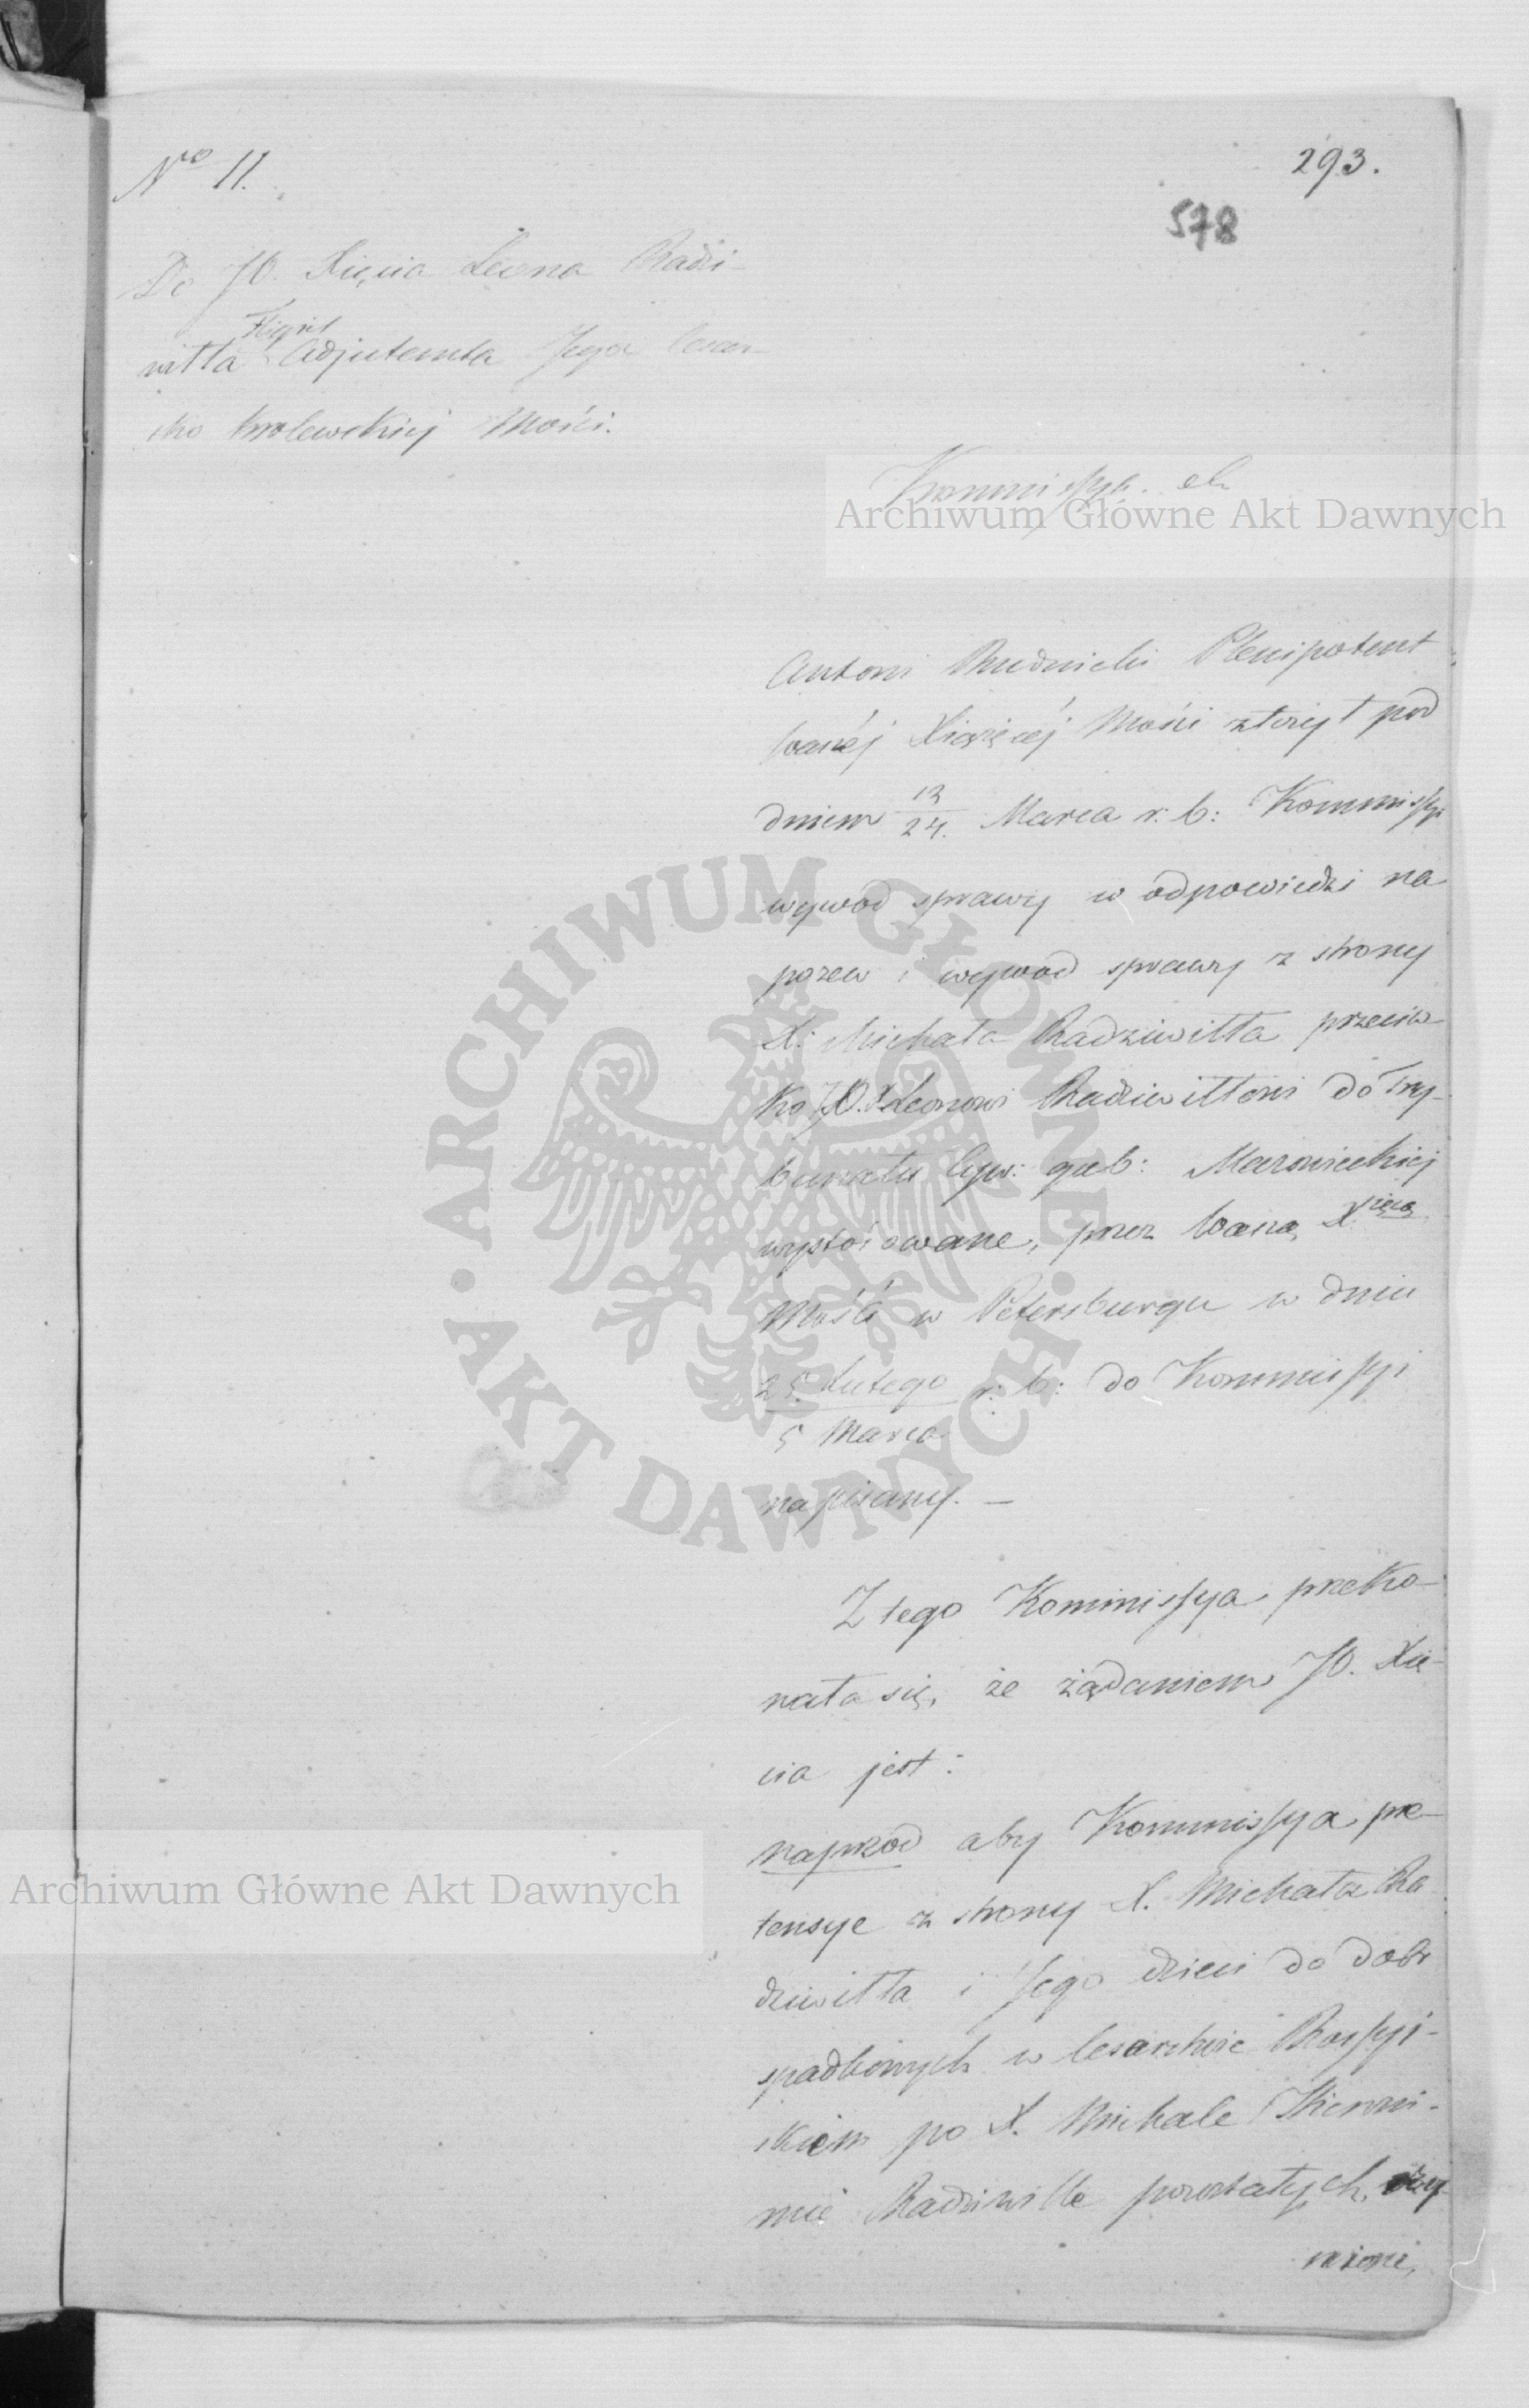 No 11.
293.
578
Do JO. Xięcia Leona Radzi-
Fligiel
wiłła Adjutanta Jego Cesar-
sko Królewskiej Mości.
Kommissya etc
Archiwum Główne Akt Dawnych
Antoni Rudnicki Plenipotent
Waszéj Xiążęcéj Mości złożył pod
dniem 12/24. Marca r: b: Kommissyi
wywód sprawy w odpowiedzi na
pozew i wywód sprawy z strony
X. Michała Radziwiłła przeciw-
ko JO. X Leonowi Radziwiłłowi do Try-
bunału Cyw: gub: Mazowieckiej
wystósowane, przez Waszą Xiążęcą
Mość w Petersburgu w dniu
25 Lutego r: b: do Kommissyi
5 Marca
napisany. —
Z tego Kommissya przeko-
nała się, że żądaniem JO. Xię-
cia jest:
naprzód aby Kommissya pre-
tensye z strony X. Michała Ra
dziwiłła i Jego dzieci do dóbr
spadkowych w Cesarstwie Rossyi-
skiem po X. Michale Hieroni-
mie Radziwille pozostałych, czy-
nione,
ARCHIWUM GŁÓWNE · AKT DAWNYCH ·
Archiwum Główne Akt Dawnych